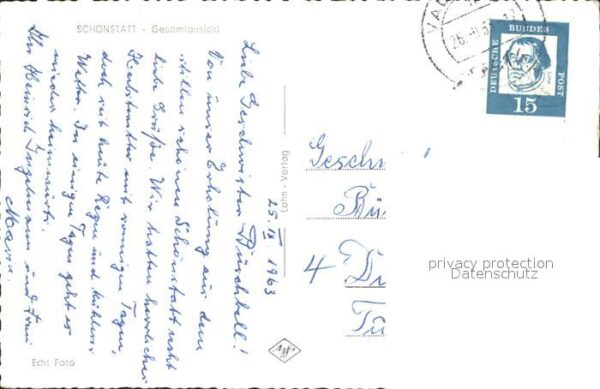 SCHÖNSTATT - Gesamtansicht
25. IX. 1963
Liebe Geschwister Büschkell!
Von unser Erholung aus dem
stillen schönen Schönstatt recht
liebe Grüße. Wir hatten herrliches
Herbstwetter mit sonnigen Tagen,
doch seit heute Regen und kühleres
Wetter. In einigen Tagen geht es
wieder heimwärts.
Ihr Heinrich und Frau
Maria.
Echt Foto
Lahn - Verlag
Gesch
4
DEUTSCHE
BUNDES
POST
15
privacy protection
Datenschutz